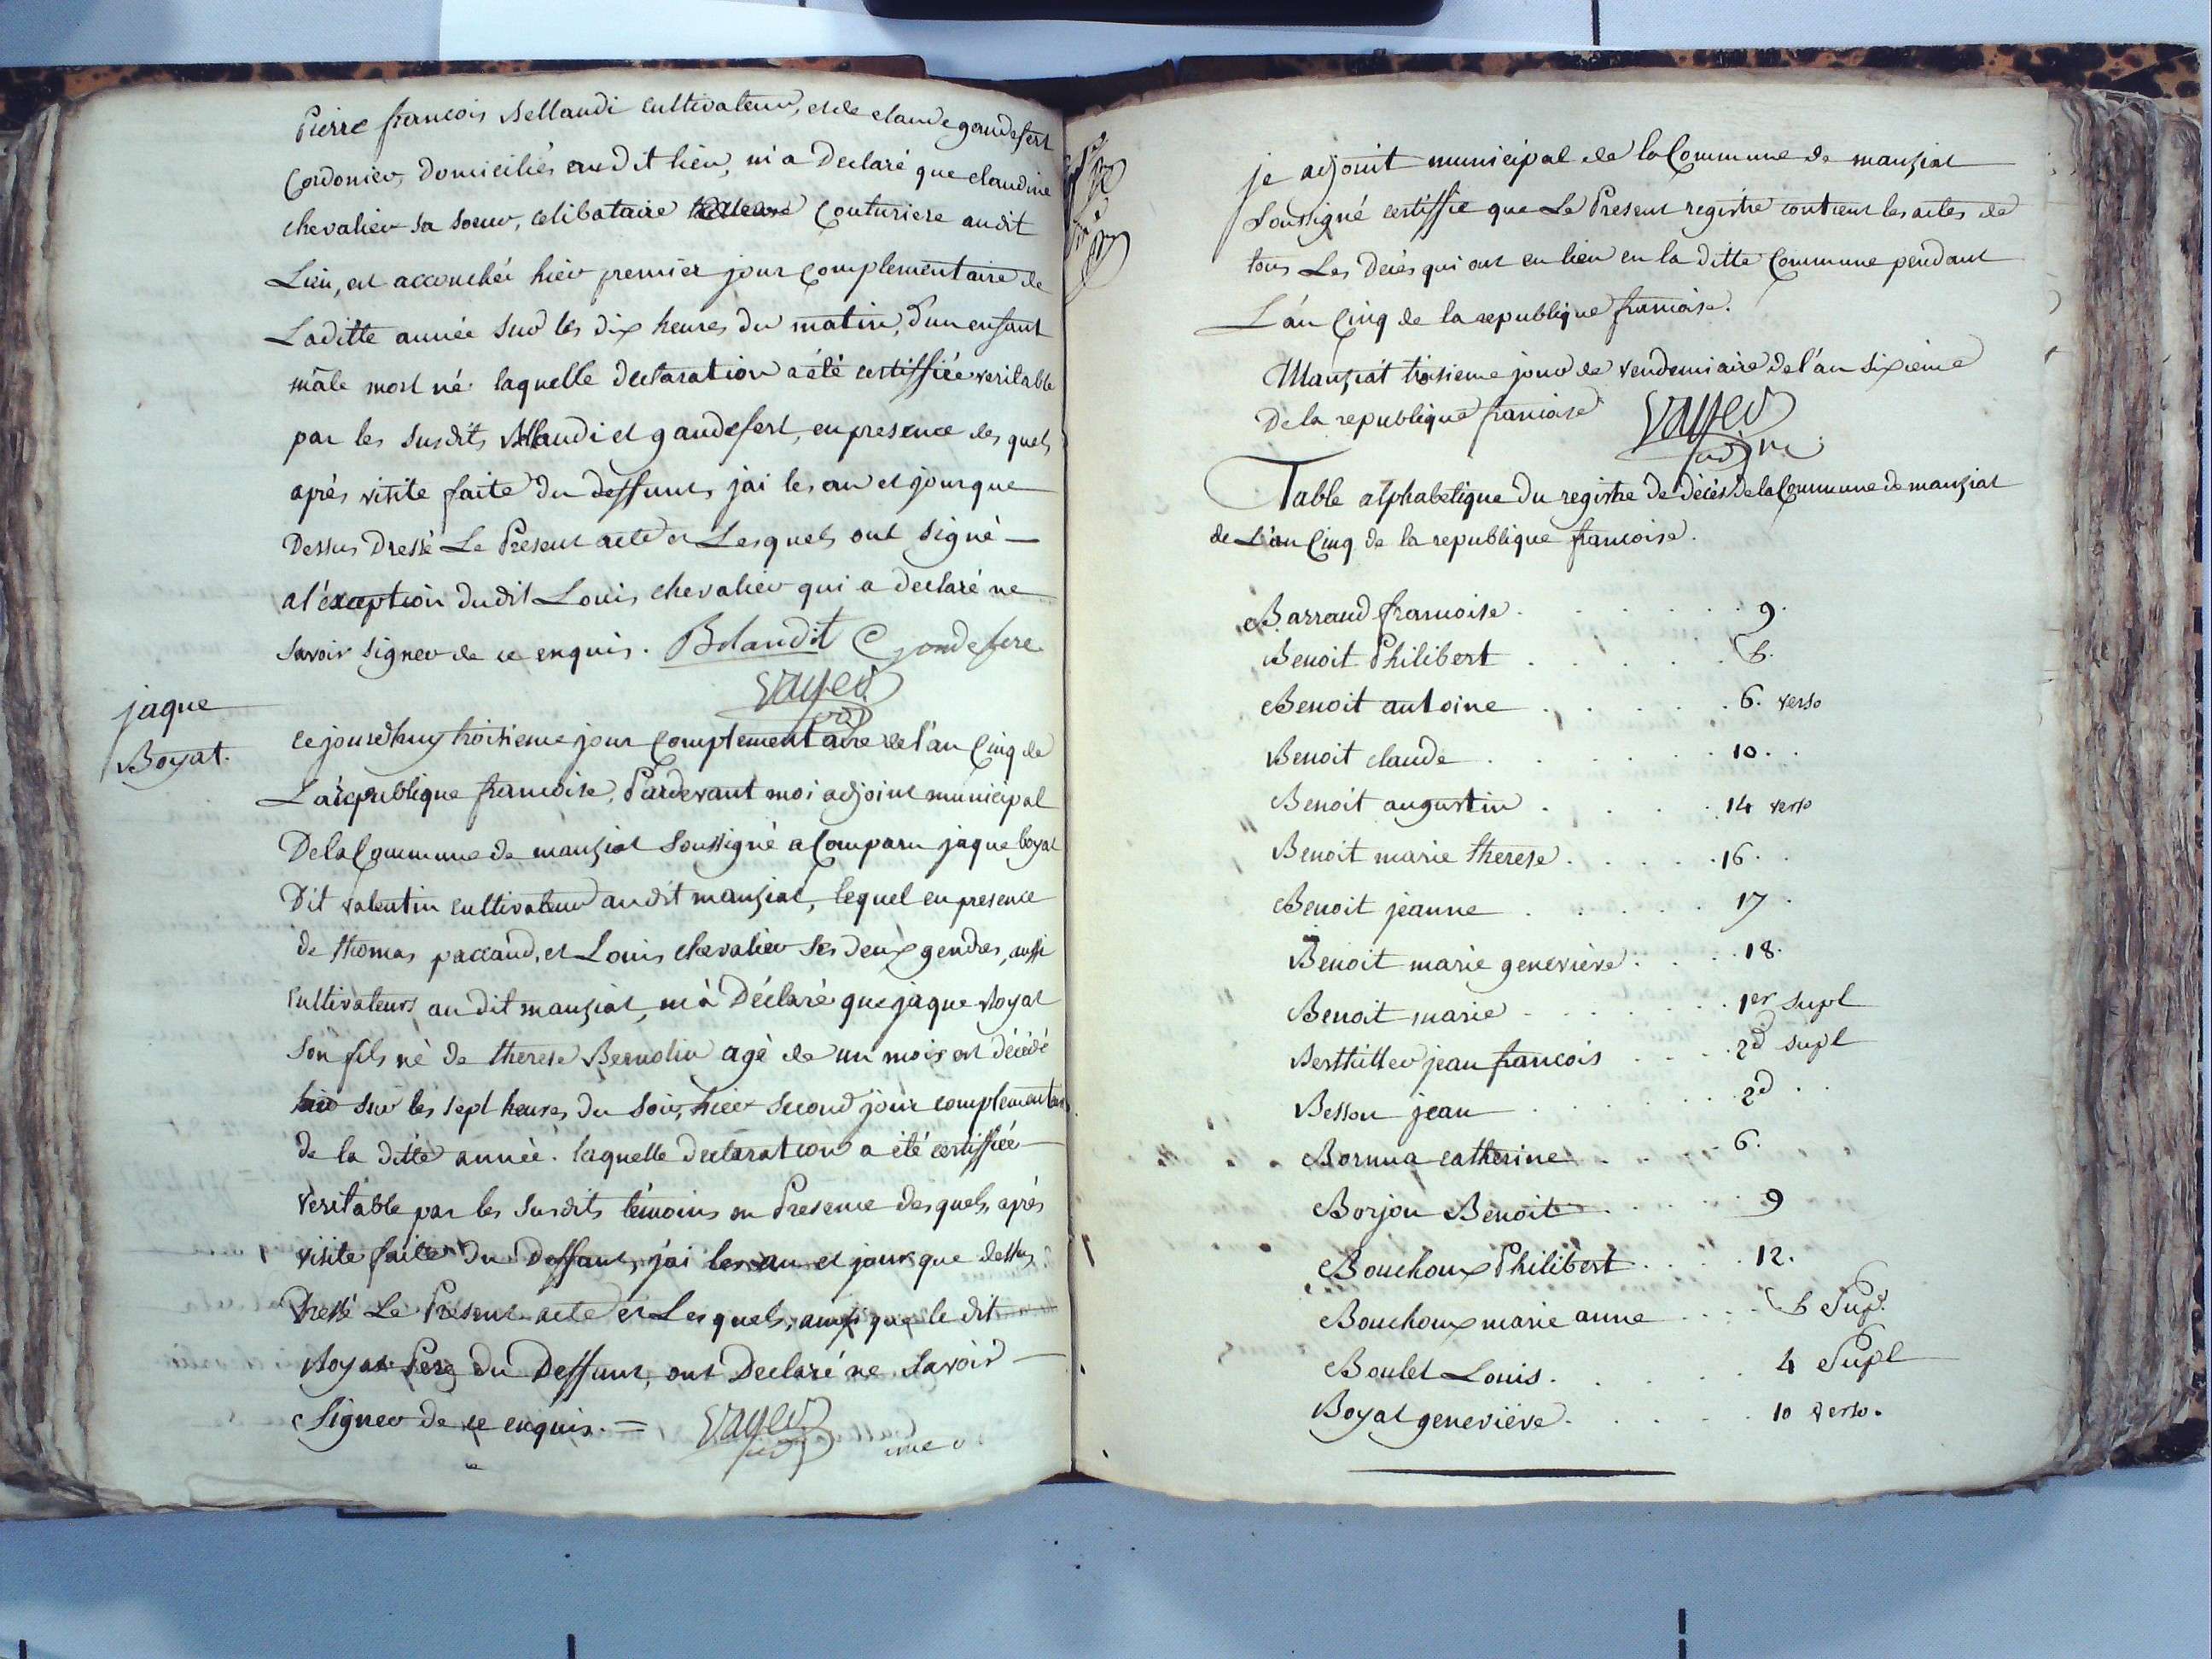 Pierre francois Bellaudi cultivateur, et de claude gandefert
Cordonier, domiciliés audit lieu, m'a declaré que claudine
chevalier sa soeur, celibataire Couturiere audit
Lieu, est accouchée hier premier jour complementaire de
Laditte année sur les dix heures du matin, d'un enfant
mâle mort né. laquelle declaration a été certiffiée veritable
par les susdits Bellaudi et gandefert, en presence des quels
après visite faite du deffunt, j'ai les an et jour que
Dessus Dressé Le Present acte et Lesquels ont signé —
a l'exception dudit Louis chevalier qui a declaré ne
savoir signer de ce enquis. Blaudit C gondefere
vayer
adj
jaque
Boyat.
cejourdhuy troisieme jour complementaire de l'an Cinq de
La republique francoise, Pardevant moi adjoint municipal
De la Commune de manziat soussigné a Comparu jaque boyat
Dit valentin cultivateur audit manziat, lequel en presence
de thomas paccaud, et Louis chevalier ses deux gendres, aussi
cultivateurs audit manziat, m'a Déclaré que jaque Boyat
son fils né de therese Bernolin agé de un mois est décédé
sur les sept heures du soir, hier second jour complementaire
de la ditte année. laquelle declaration a été certiffiée
veritable par les susdits témoins en Presence desquels, après
visite faite du Deffunt, j'ai les an et jour que dessus
Dressé Le Present acte et Lesquels, ainsi que le dit
Boyat Pere du Deffunt, ont Declaré ne savoir
signer de ce enquis. = vayer
adj
je adjoint municipal de la Commune de manziat
soussigné certiffie que Le Present registre contient les actes de
tous Les décès qui ont eu lieu en la ditte Commune pendant
L'an Cinq de la republique francoise.
Manziat troisieme jour de vendemiaire de l'an sixieme
De la republique francoise vayer
adj
Table alphabetique du registre de décès de la Commune de manziat
de L'an Cinq de la republique francoise.
Barraud francoise . . . . . 9.
Benoit Philibert . . . . .
Benoit antoine . . . . . 6. verso
Benoit claude . . . . . 10. .
Benoit augustin . . . . . 14 verso
Benoit marie therese . . . . . 16. .
Benoit jeanne . . . . . 17 .
Benoit marie genevieve . . . . 18.
Benoit marie . . . . . 1er supl
Berthillier jean francois . . . . 2d supl
Besson jean . . . . . 2d . .
Bornua catherine . . . . 6.
Borjon Benoit . . . . . 9
Bouchoux Philibert . . . . 12.
Bouchoux marie anne . . . Supl
Boulet Louis . . . . . 4 Supl
Boyat genevieve . . . . . 10 verso.